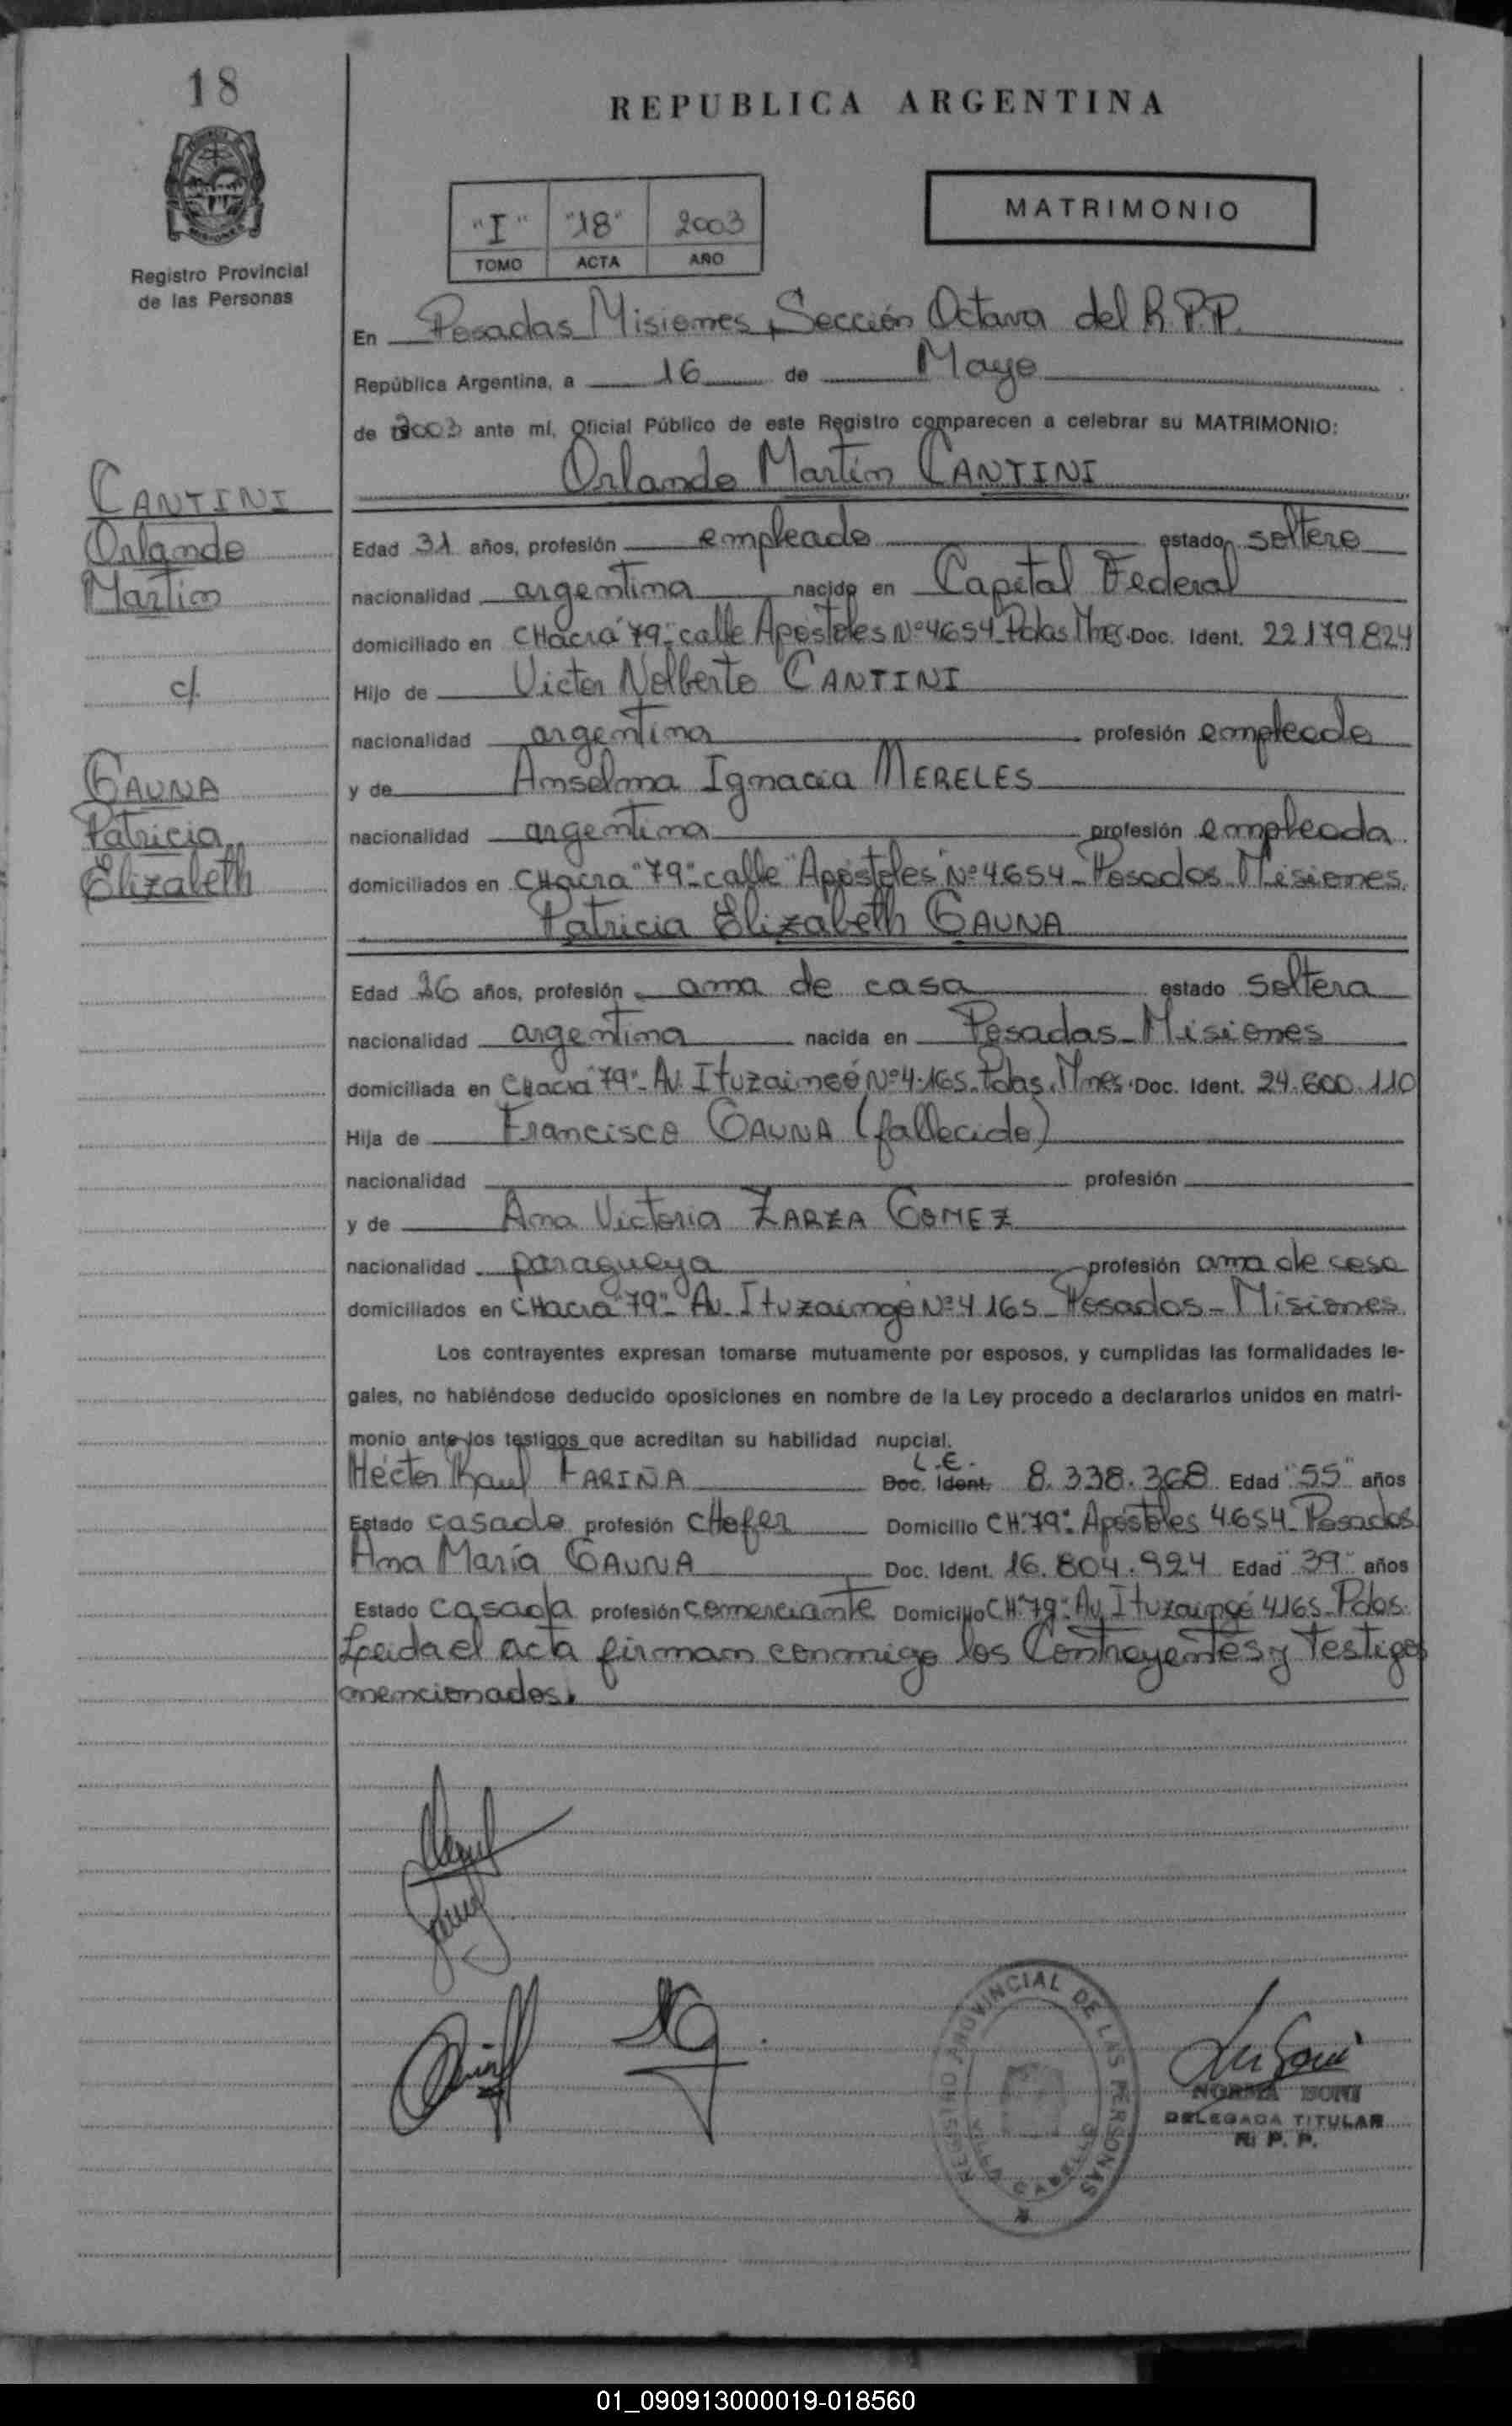 18
Registro Provincial
de las Personas
REPUBLICA ARGENTINA
"I" "18" 2003
TOMO ACTA AÑO
MATRIMONIO
En Posadas Misiones, Sección Octava del R.P.P.
República Argentina, a 16 de Mayo
de 2003 ante mí, Oficial Público de este Registro comparecen a celebrar su MATRIMONIO:
Orlando Martín CANTINI
CANTINI
Orlando
Martín
c/.
GAUNA
Patricia
Elizabeth
Edad 31 años, profesión empleado estado soltero
nacionalidad argentina nacido en Capital Federal
domiciliado en CHacra "79"-calle Apóstoles Nº4654-Pdas Mnes. Doc. Ident. 22.179.824
Hijo de Victor Nolberto CANTINI
nacionalidad argentina profesión empleado
y de Anselma Ignacia MERELES
nacionalidad argentina profesión empleada
domiciliados en CHacra "79"-calle "Apóstoles" Nº4654-Posadas-Misiones.
Patricia Elizabeth GAUNA
Edad 26 años, profesión ama de casa estado soltera
nacionalidad argentina nacida en Posadas-Misiones
domiciliada en CHacra "79"-Av. Ituzaingó Nº4.165-Pdas.Mnes. Doc. Ident. 24.600.110
Hija de Francisco GAUNA (fallecido)
nacionalidad profesión
y de Ana Victoria ZARZA GOMEZ
nacionalidad paraguaya profesión ama de casa
domiciliados en CHacra "79"-Av. Ituzaingó Nº4165-Posadas-Misiones
Los contrayentes expresan tomarse mutuamente por esposos, y cumplidas las formalidades le-
gales, no habiéndose deducido oposiciones en nombre de la Ley procedo a declararlos unidos en matri-
monio ante los testigos que acreditan su habilidad nupcial.
L.E.
Héctor Raul FARIÑA Doc. Ident. 8.338.368 Edad "55" años
Estado casado profesión CHofer Domicilio CH."79"-Apóstoles 4654-Posadas
Ana María GAUNA Doc. Ident. 16.804.924 Edad "39" años
Estado casada profesión comerciante Domicilio CH."79"-Av. Ituzaingó 4165-Pdas.
Leida el acta firman conmigo los Contrayentes y Testigos
mencionados.
REGISTRO PROVINCIAL DE LAS PERSONAS
VILLA CABELLO
NORMA BONI
DELEGADA TITULAR
R. P. P.
01_090913000019-018560